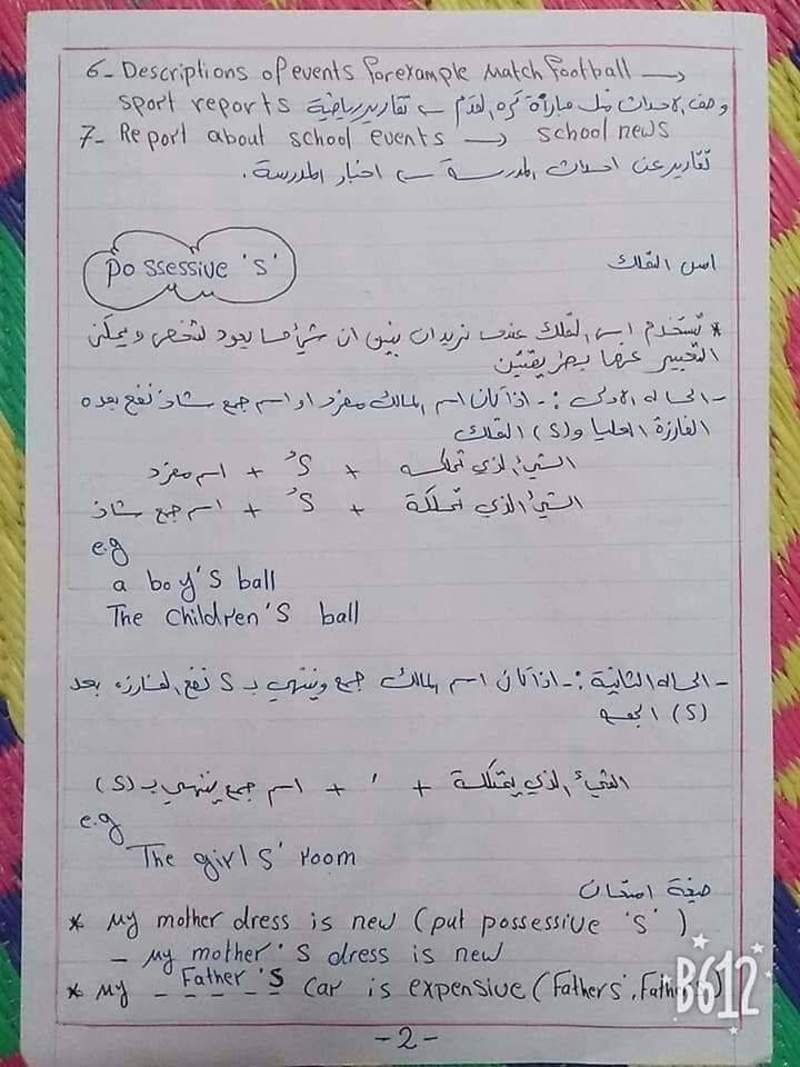 6- Descriptions of events for example Match Football →
وصف الاحداث مثل مباراة كره القدم ← تقارير رياضية sport reports
7- Report about school events → school news
تقارير عن احداث المدرسة ← اخبار المدرسة.
Possessive 's'
اس التملك
* تستخدم اس التملك عندما نريد ان نبين ان شيء ما يعود لشخص ويمكن
التعبير عنها بطريقتين
- الحاله الاولى :- اذا كان اسم المالك مفرد او اسم جمع شاذ نضع بعده
الفارزة العليا و(s) التملك
الشيء الذي تملكه + 's + اسم مفرد
الشيء الذي تملكة + 's + اسم جمع شاذ
e.g
a boy's ball
The children's ball
- الحاله الثانية :- اذا كان اسم المالك جمع وينتهي بـ s نضع الفارزه بعد
(s) الجمع
الشيء الذي يمتلكة + ' + اسم جمع ينتهي بـ (s)
e.g
The girls' room
صيغة امتحان
* My mother dress is new (put possessive 's')
- My mother's dress is new
* My Father's car is expensive (Fathers',
B612
-2-